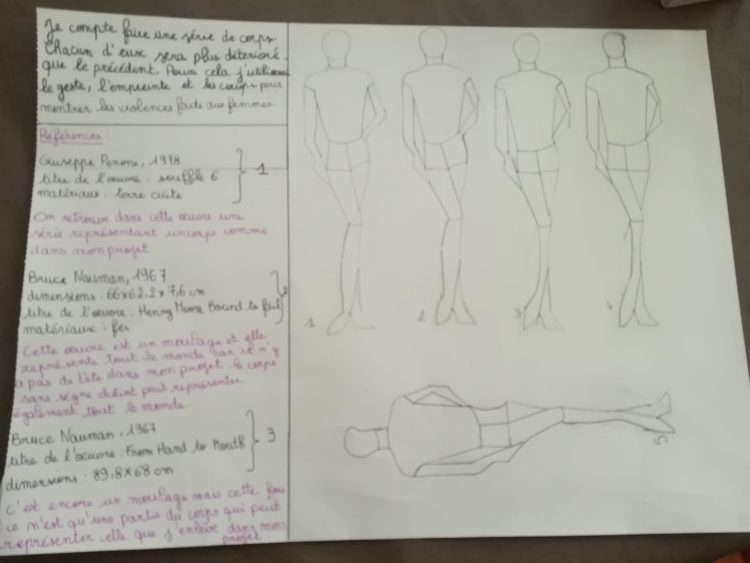 Je compte faire une série de corps.
Chacun d'eux sera plus détérioré
que le précédent. Pour cela j'utiliserai
le geste, l'empreinte et les coups pour
montrer les violences faite aux femmes
Références :
Giuseppe Penone, 1978
titre de l'œuvre : souffle 6
matériaux : terre cuite
1
On retrouve dans cette œuvre une
série représentant un corps comme
dans mon projet
Bruce Nauman, 1967
dimensions : 66x62.2x7,6 cm
titre de l'œuvre : Henry Moore Bound to fail
matériaux : fer
2
Cette œuvre est un moulage et elle
représente tout le monde car il n'y
a pas de tête dans mon projet le corps
sans signe distint peut représenter
également tout le monde.
Bruce Nauman, 1967
titre de l'œuvre : From Hand to Mouth
dimensions : 89,8x68 cm
3
C'est encore un moulage mais cette fois
ce n'est qu'une partie du corps qui peut
représenter elle que j'enlève dans mon
projet.
1
2
3
4
5